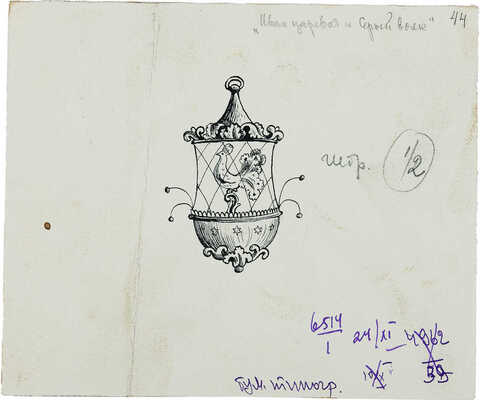 „Иван царевич и Серый волк“ 44
штр. 1/2
6514
1
24/XI
62
39
бум. типогр.